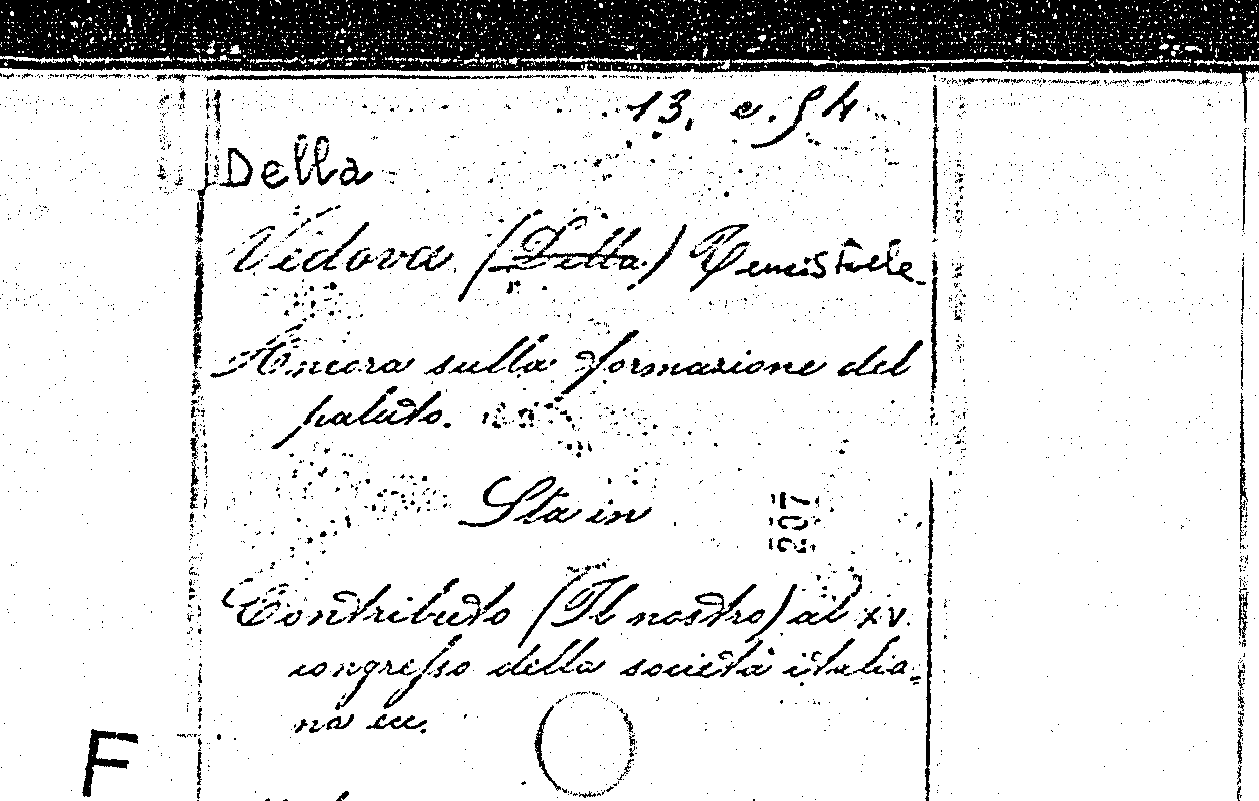 13. e. 54
Della
Vedova (Della) Temistocle
Ancora sulla formazione del
paluto.
Sta in
207
Contributo (Il nostro) al XV
congresso della società italia=
na ecc.
F